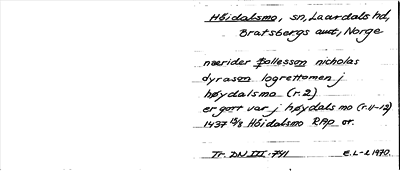 Höidalsmo, sn, Laardals hd,
Bratsbergs amt, Norge
nærider þollesson nicholas
dyrason logrettomen j
høydalsmo (r.2)
er gort var j høydals mo (r.11-12)
1437 15/8 Höidalsmo RAp or.
Tr. DN III-741 E.L-2 1970.